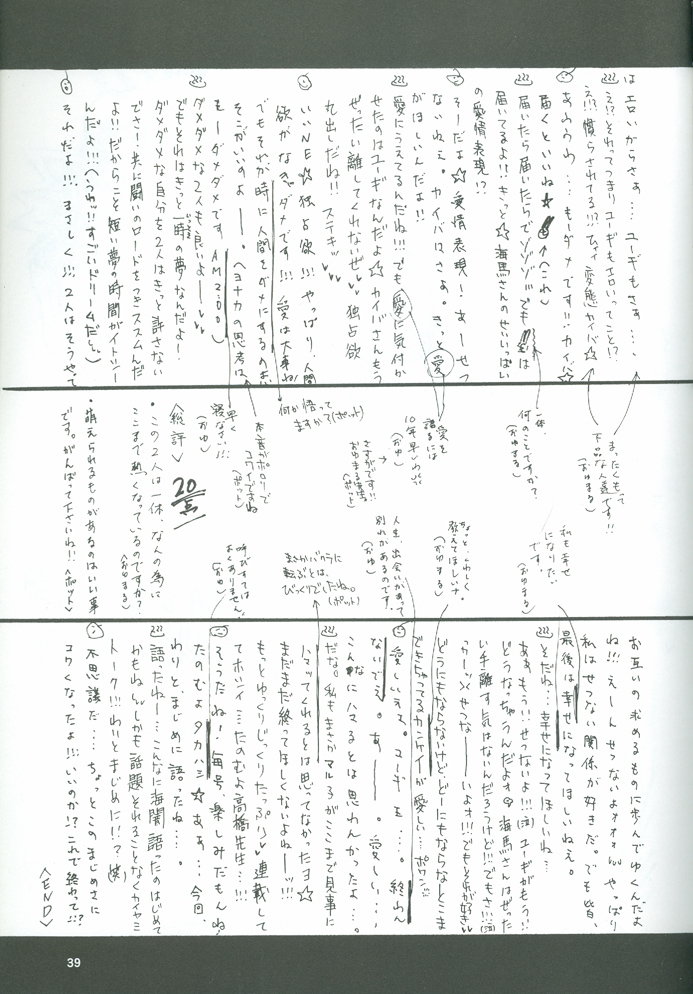 はエロいからさぁ…ユーギもさぁ…、
え!?それってつまりユーギもエロいってこと!?
え!?慣らされてる!?!?ひゃィ 変態カイバ☆
あぅぅわ…もーダメです!!カイバ☆
届くといいね★ (↑これ)
届いたら届いたらでゾゾゾ…でも は
届いてるよ!!きっと☆海馬さんのせいいっぱい
の愛情表現!?
そーだよ☆愛情表現!あーせつ
ないねぇ。カイバはさぁ。きっと愛
がほしいんだよ!!
愛にうえてるんだね!!!でも愛に気付か
せたのはユーギなんだよ☆カイバさんもう
ぜったい離してくれないぜ 独占欲
丸出しだね!!ステキッ
いいNE☆独占欲!!!やっぱり人間
欲がなきゃダメです!!!愛は大事ね
でもそれが時に人間をダメにするのよ…
そこがいいのよー。ヘヨナカの思考は、
もーダメダメです AM2:00)
ダメダメな2人も良いよー
でもそれはきっと一時の夢なんだよー!
ダメダメな自分を2人はきっと許さない
でさ!共に闘いのロードをつきススムんだ
よ!!だからこそ短い夢の時間がイトシー
んだよ!!!(へつわッ!!すごいドリームだぜ)
それだよ!!!まさしく!!!2人はそうやって
まったくもって
下品な人達です!!
(おゆまる)
一体、
何のことですか?
(おゆまる)
愛を
語るには
10年早いわッ
(おゆ)
さすがです!!
おゆまる先生
(ポット)
何か悟って
ますかて(ポット)
本音がポロリで
コワイですね
(ポット)
早く
寝なさい!!!
(おゆ)
<総評>
20点
・この2人は一体、なんの為に
ここまで熱くなっているのですか?
<おゆまる>
・萌えられるものがあるのはいい事
です。がんばって下さいね!!<ポット>
私も幸せ
になりたい
です。
(おゆまる)
ちょっとくわしく
教えてほしいナ
(おゆまる)
人生、出会いがあって
別れがあるのです。
(おゆ)
まさかバクラに
転ぶとは、
びっくりでしたね。
(ポット)
呼びすては
よくありません。
(おゆ)
お互いの求めるものに歩んでゆくんだよ
ね!!!えーんせつないよォォォ やっぱり
私はせつない関係が好きだ。でも皆、
最後は幸せになってほしいねぇ。
そだね…幸せになってほしいね…
あぁもう!!せつないよ!!!(泣)ユーギがもう!!
どうなっちゃうんだよォ 海馬さんはぜった
い手離す気はないんだろうけど!!でもさ!!!(泣)
っかーッ せつなーーいよォ!!!でもそれが好き
どうにもならないけどどーにもならなとこま
できちゃってるカンケイが愛しい…ポワン
愛しいえ。ユーギ も…。終わん
ないでえ。あー。愛しい…、
こんなにハマるとは思わんかったよ…。
だな。私もまさかマル3がここまで見事に
ハマッてくれるとは思ってなかったヨ☆
まだまだ終ってほしくないよねーッ!!!
もっとゆっくりじっくりたっぷり 連載して
てホシイ…たのむよ高橋先生…!!!
そうだね!毎号、楽しみだもんね
たのむよタカハシ☆あぁ…今回、
わりと、まじめに語ったね…。
語ったねー…こんなに海闇語ったのはじめて
かもね しかも話題それることなくカイヤミ
トーク!!!わりとまじめに!!?(笑)
不思議だ…ちょっとこのまじめさに
コワくなったよ!!!いいのか!?これで終わって!!?
<END>
39